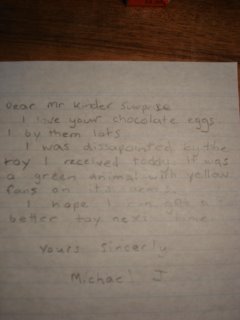 Dear Mr Kinder Surprise
I love your chocolate eggs.
I by them lots
I was dissapointed by the
toy I received today. It was
a green animal with yellow
fans on its arms.
I hope I can get a
better toy next time.
Yours Sincerly
Michael J.